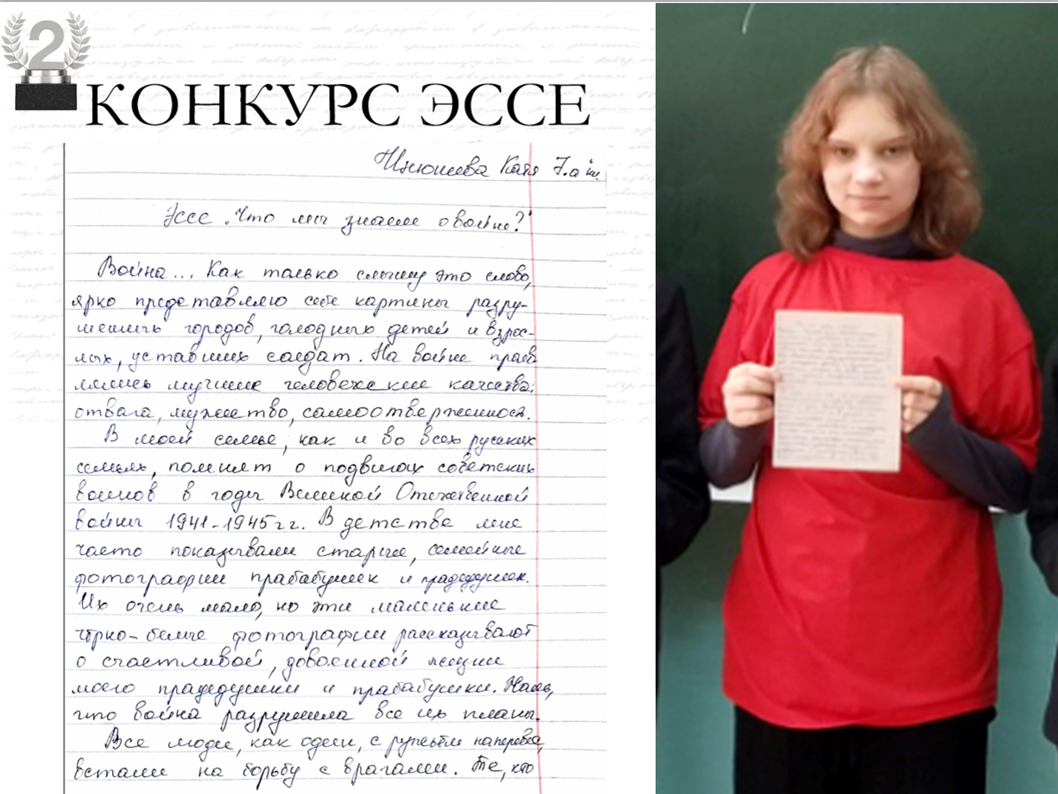 2
КОНКУРС ЭССЕ
Катя 7.а
Эссе „Что мы знаем о войне?"
Война... Как только слышу это слово,
ярко представляю себе картины разру-
шенных городов, голодных детей и взрос-
лых, уставших солдат. На войне прояв
лялись лучшие человеческие качества:
отвага, мужество, самоотверженность.
В моей семье, как и во всех русских
семьях, помнят о подвигах советских
воинов в годы Великой Отечественной
войны 1941-1945 гг. В детстве мне
часто показывали старые, семейные
фотографии прабабушек и прадедушек.
Их очень мало, но эти маленькие
чёрно-белые фотографии рассказывают
о счастливой, довоенной жизни
моего прадедушки и прабабушки. Жаль,
что война разрушила все их планы.
Все люди, как один, с ружьём наперевес,
встали на борьбу с врагами. Те, кто